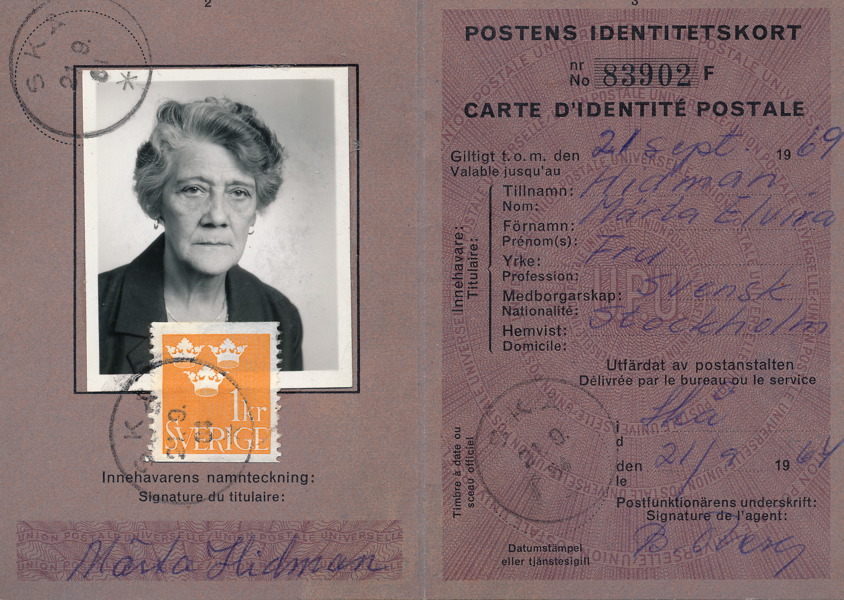 2
SKÅ
21.9.
*
1 kr
SVERIGE
SKÅ
21.9.
Innehavarens namnteckning:
Signature du titulaire:
UNION POSTALE UNIVERSELLE
Märta Hidman
3
POSTENS IDENTITETSKORT
nr
No 83902 F
CARTE D'IDENTITÉ POSTALE
Giltigt t.o.m. den 21 sept 1969
Valable jusqu'au
Innehavare:
Titulaire:
Tillnamn: Hidman
Nom:
Förnamn: Märta Elvira
Prénom(s):
Yrke: Fru
Profession:
Medborgarskap: Svensk
Nationalité:
Hemvist: Stockholm
Domicile:
UPU
Utfärdat av postanstalten
Délivrée par le bureau ou le service
Skå
d
den 21/9 1964
le
Timbre à date ou
sceau officiel
SKÅ
21.9.
Postfunktionärens underskrift:
Signature de l'agent:
Datumstämpel
eller tjänstesigill
B. Öberg